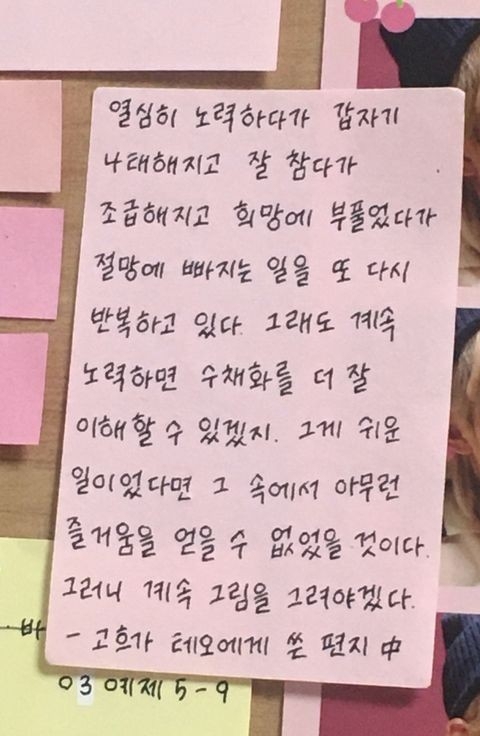 열심히 노력하다가 갑자기
나태해지고 잘 참다가
조급해지고 희망에 부풀었다가
절망에 빠지는 일을 또 다시
반복하고 있다. 그래도 계속
노력하면 수채화를 더 잘
이해할 수 있겠지. 그게 쉬운
일이었다면 그 속에서 아무런
즐거움을 얻을 수 없었을 것이다.
그러니 계속 그림을 그려야겠다.
- 고흐가 테오에게 쓴 편지 中
바
03 예제 5-9